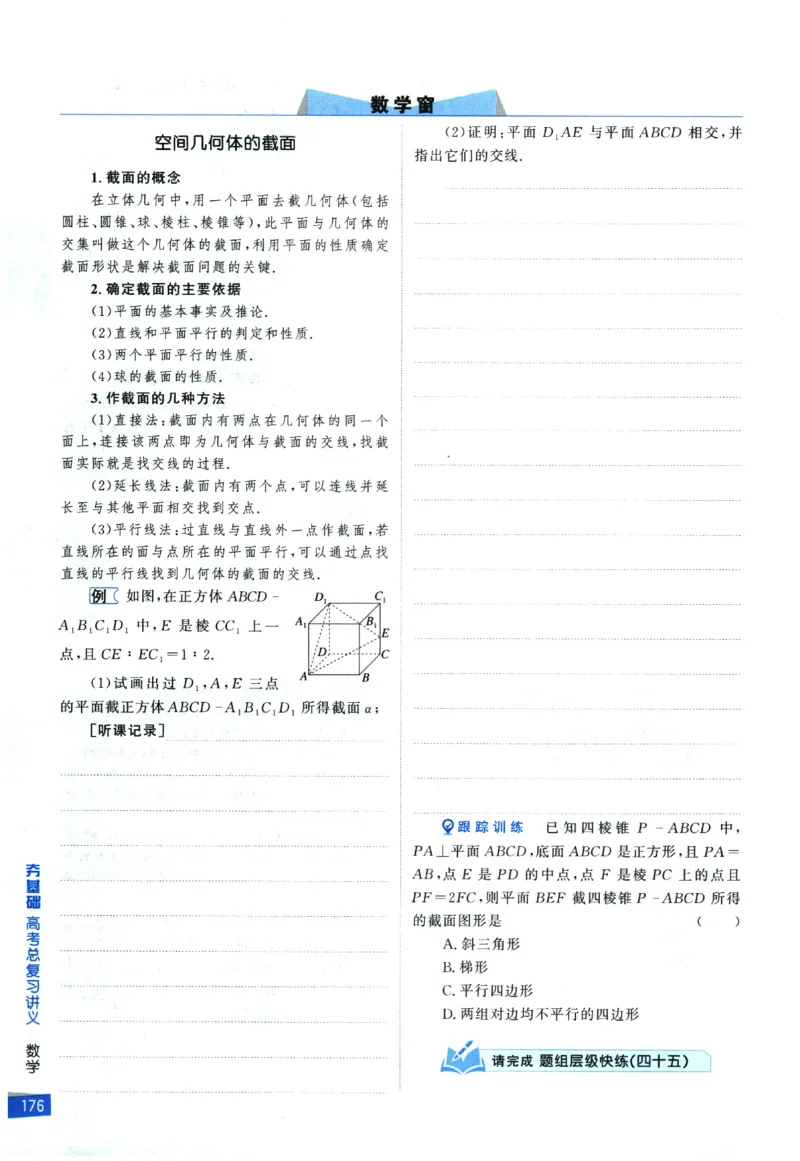 数学窗
空间几何体的截面
1.截面的概念
在立体几何中,用一个平面去截几何体(包括
圆柱、圆锥、球、棱柱、棱锥等),此平面与几何体的
交集叫做这个几何体的截面,利用平面的性质确定
截面形状是解决截面问题的关键.
2.确定截面的主要依据
(1)平面的基本事实及推论.
(2)直线和平面平行的判定和性质.
(3)两个平面平行的性质.
(4)球的截面的性质.
3.作截面的几种方法
(1)直接法:截面内有两点在几何体的同一个
面上,连接该两点即为几何体与截面的交线,找截
面实际就是找交线的过程.
(2)延长线法:截面内有两个点,可以连线并延
长至与其他平面相交找到交点.
(3)平行线法:过直线与直线外一点作截面,若
直线所在的面与点所在的平面平行,可以通过点找
直线的平行线找到几何体的截面的交线.
例 如图,在正方体 ABCD-
A₁B₁C₁D₁ 中,E 是棱 CC₁ 上一
点,且 CE∶EC₁=1∶2.
(1)试画出过 D₁,A,E 三点
的平面截正方体 ABCD-A₁B₁C₁D₁ 所得截面 α;
D₁
C₁
A₁
B₁
E
D
C
A
B
[听课记录]
(2)证明:平面 D₁AE 与平面 ABCD 相交,并
指出它们的交线.
跟踪训练 已知四棱锥 P-ABCD 中,
PA⊥平面 ABCD,底面 ABCD 是正方形,且 PA=
AB,点 E 是 PD 的中点,点 F 是棱 PC 上的点且
PF=2FC,则平面 BEF 截四棱锥 P-ABCD 所得
的截面图形是 ( )
A.斜三角形
B.梯形
C.平行四边形
D.两组对边均不平行的四边形
请完成 题组层级快练(四十五)
夯基础 高考总复习讲义 数学
176